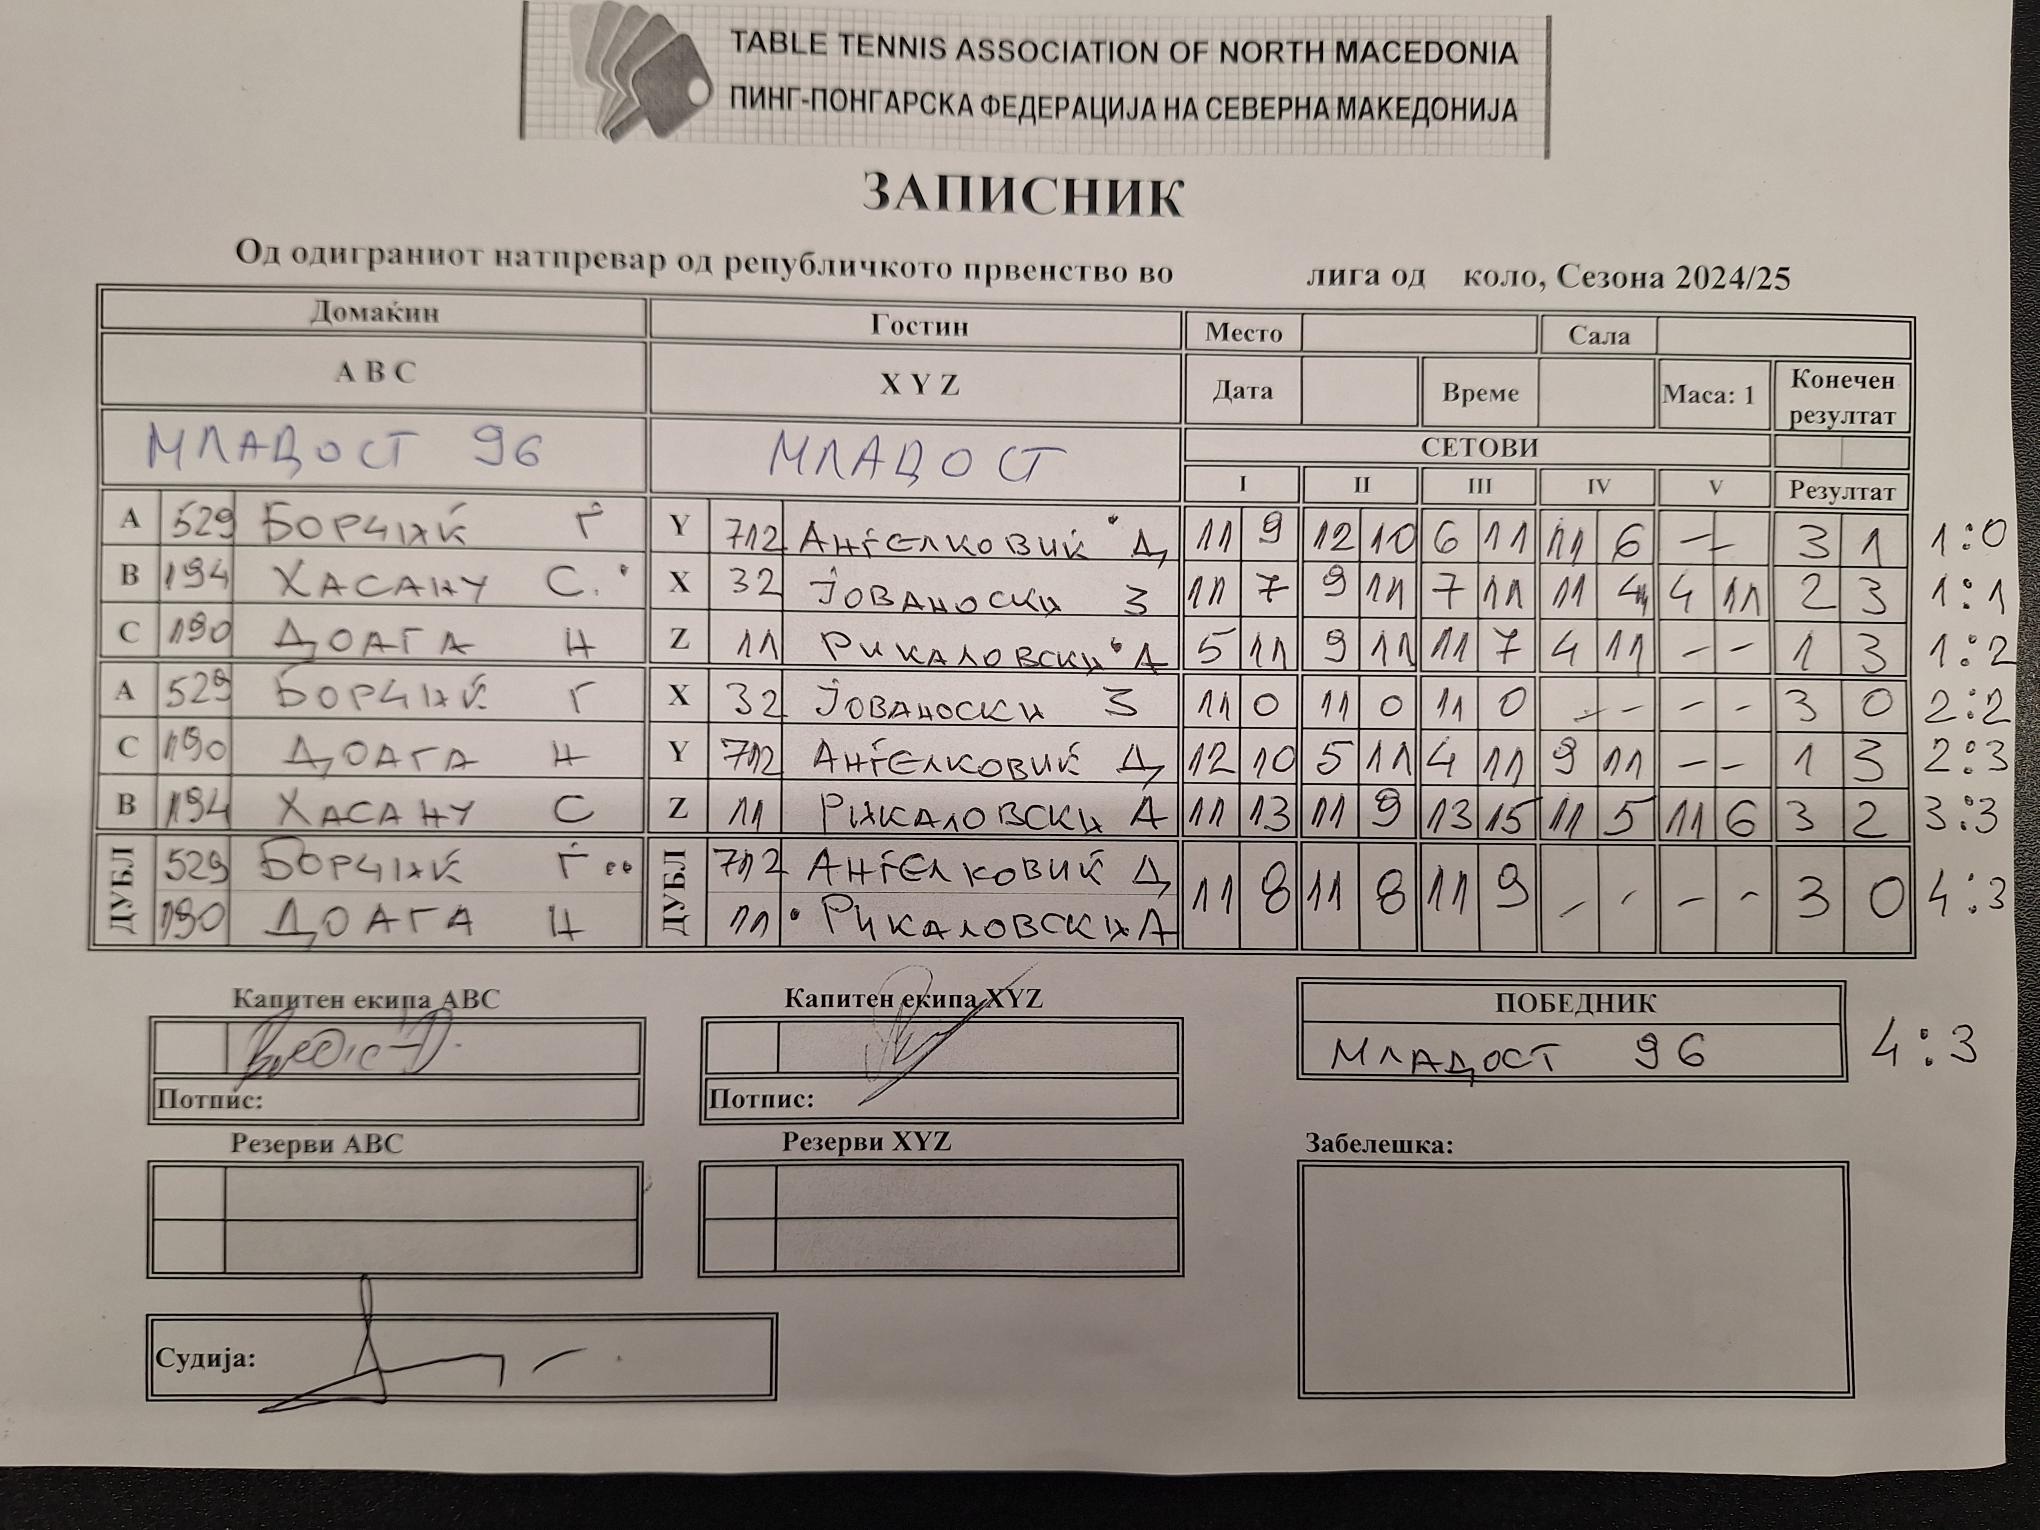 TABLE TENNIS ASSOCIATION OF NORTH MACEDONIA
ПИНГ-ПОНГАРСКА ФЕДЕРАЦИЈА НА СЕВЕРНА МАКЕДОНИЈА
ЗАПИСНИК
Од одиграниот натпревар од републичкото првенство во лига од коло, Сезона 2024/25
Домаќин Гостин Место Сала
A B C X Y Z Дата Време Маса: 1 Конечен резултат
МЛАДОСТ 96 МЛАДОСТ СЕТОВИ
I II III IV V Резултат
A 529 БОРЧИЌ Ѓ Y 712 АНЃЕЛКОВИЌ Д 11 9 12 10 6 11 11 6 - - 3 1 1:0
B 194 ХАСАНУ С. X 32 ЈОВАНОСКИ З 11 7 9 11 7 11 11 4 4 11 2 3 1:1
C 190 ДОАГА Н Z 11 РИКАЛОВСКИ А 5 11 9 11 11 7 4 11 - - 1 3 1:2
A 529 БОРЧИЌ Г X 32 ЈОВАНОСКИ З 11 0 11 0 11 0 - - - - 3 0 2:2
C 190 ДОАГА Н Y 712 АНЃЕЛКОВИЌ Д 12 10 5 11 4 11 9 11 - - 1 3 2:3
B 194 ХАСАНУ С Z 11 РИКАЛОВСКИ А 11 13 11 9 13 15 11 5 11 6 3 2 3:3
ДУБЛ 529 БОРЧИЌ Ѓ ДУБЛ 712 АНЃЕЛКОВИЌ Д 11 8 11 8 11 9 - - - - 3 0 4:3
190 ДОАГА Н 11 РИКАЛОВСКИ А
Капитен екипа ABC Капитен екипа XYZ ПОБЕДНИК
МЛАДОСТ 96 4:3
Потпис: Потпис:
Резерви ABC Резерви XYZ Забелешка:
Судија: